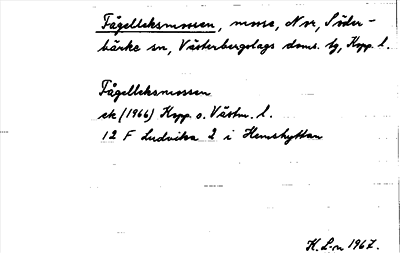 Fågelleksmossen, mosse, Nor, Söder-
bärke sn, Västerbergslags doms. tg, Kopp. l.
Fågelleksmossen
ek (1966) Kopp. o. Västm. l.
12 F Ludvika 2 i Hemshyttan
H. L-n 1967.